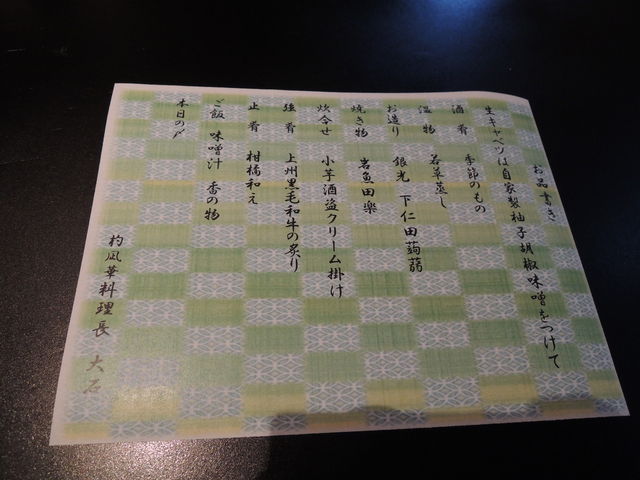 お品書き
生キャベツは自家製柚子胡椒味噌をつけて
酒肴 季節のもの
温物 若草蒸し
お造り 銀光 下仁田蒟蒻
焼き物 岩魚田楽
炊合せ 小芋酒盗クリーム掛け
強肴 上州黒毛和牛の炙り
止肴 柑橘和え
ご飯 味噌汁 香の物
本日の〆
杓凪華料理長 大石